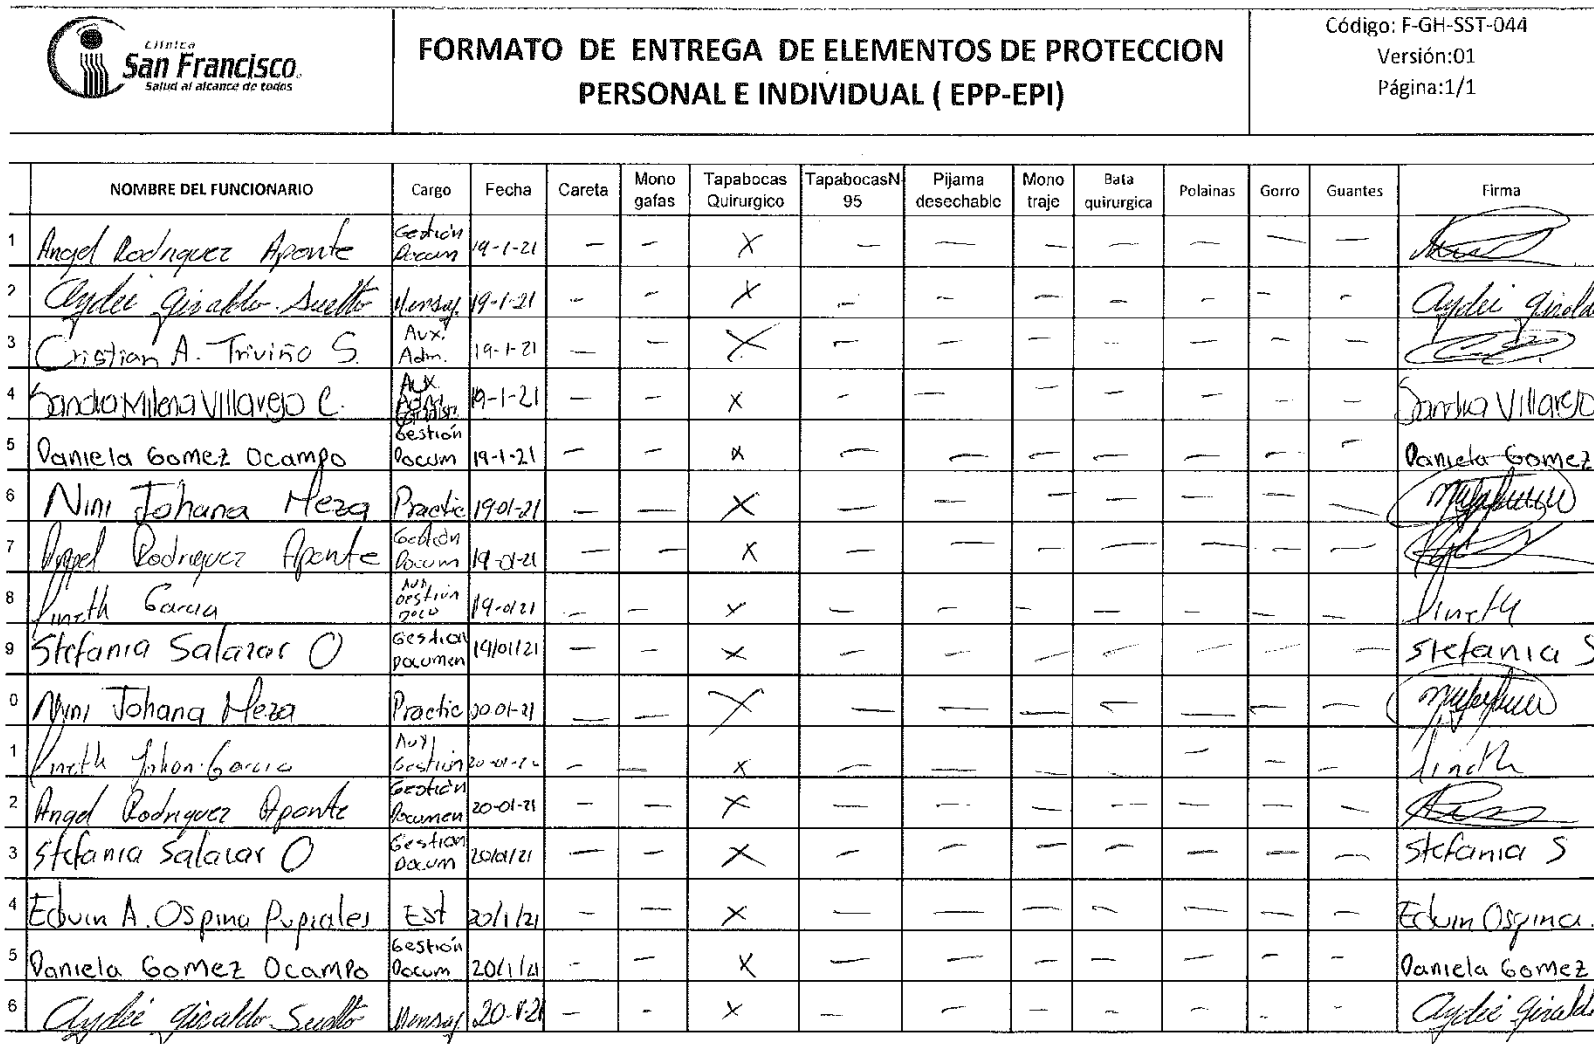 Clínica
San Francisco
Salud al alcance de todos
FORMATO DE ENTREGA DE ELEMENTOS DE PROTECCION
PERSONAL E INDIVIDUAL ( EPP-EPI)
Código: F-GH-SST-044
Versión:01
Página:1/1
NOMBRE DEL FUNCIONARIO Cargo Fecha Careta Mono gafas Tapabocas Quirurgico TapabocasN-95 Pijama desechable Mono traje Bata quirurgica Polainas Gorro Guantes Firma
1 Angel Rodriguez Aponte Gestión Docum 19-1-21 — — X — — — — — — —
2 Aydei Giraldo Suelto Mensaj. 19-1-21 — — X — — — — — — — Aydei Giraldo
3 Cristian A. Triviño S. Aux. Adm. 19-1-21 — — X — — — — — — —
4 Sandra Milena Villarejo C. Aux. Adm. 19-1-21 — — X — — — — — — — Sandra Villarejo
5 Daniela Gomez Ocampo Gestión Docum 19-1-21 — — X — — — — — — — Daniela Gomez
6 Nini Johana Meza Practic 19-01-21 — — X — — — — — — —
7 Angel Rodriguez Aponte Gestión Docum 19-01-21 — — X — — — — — — —
8 Lineth Garcia Aux Gestión Docu 19-01 21 — — X — — — — — — — Lineth
9 Stefania Salazar O Gestion Documen 19/01/21 — — X — — — — — — — Stefania S
0 Nini Johana Meza Practic 20-01-21 — — X — — — — — — —
1 Lineth Johan Garcia Auxi Gestión 20-01- — — X — — — — — — — Lineth
2 Angel Rodriguez Aponte Gestión Documen 20-01-21 — — X — — — — — — —
3 Stefania Salazar O Gestion Docum 20/01/21 — — X — — — — — — — Stefania S
4 Edwin A. Ospina Pupiales Est 20/1/21 — — X — — — — — — — Edwin Ospina.
5 Daniela Gomez Ocampo Gestión Docum 20/1/21 — — X — — — — — — — Daniela Gomez
6 Aydei Giraldo Suelto Mensaj. 20-1-21 — — X — — — — — — — Aydei Giraldo